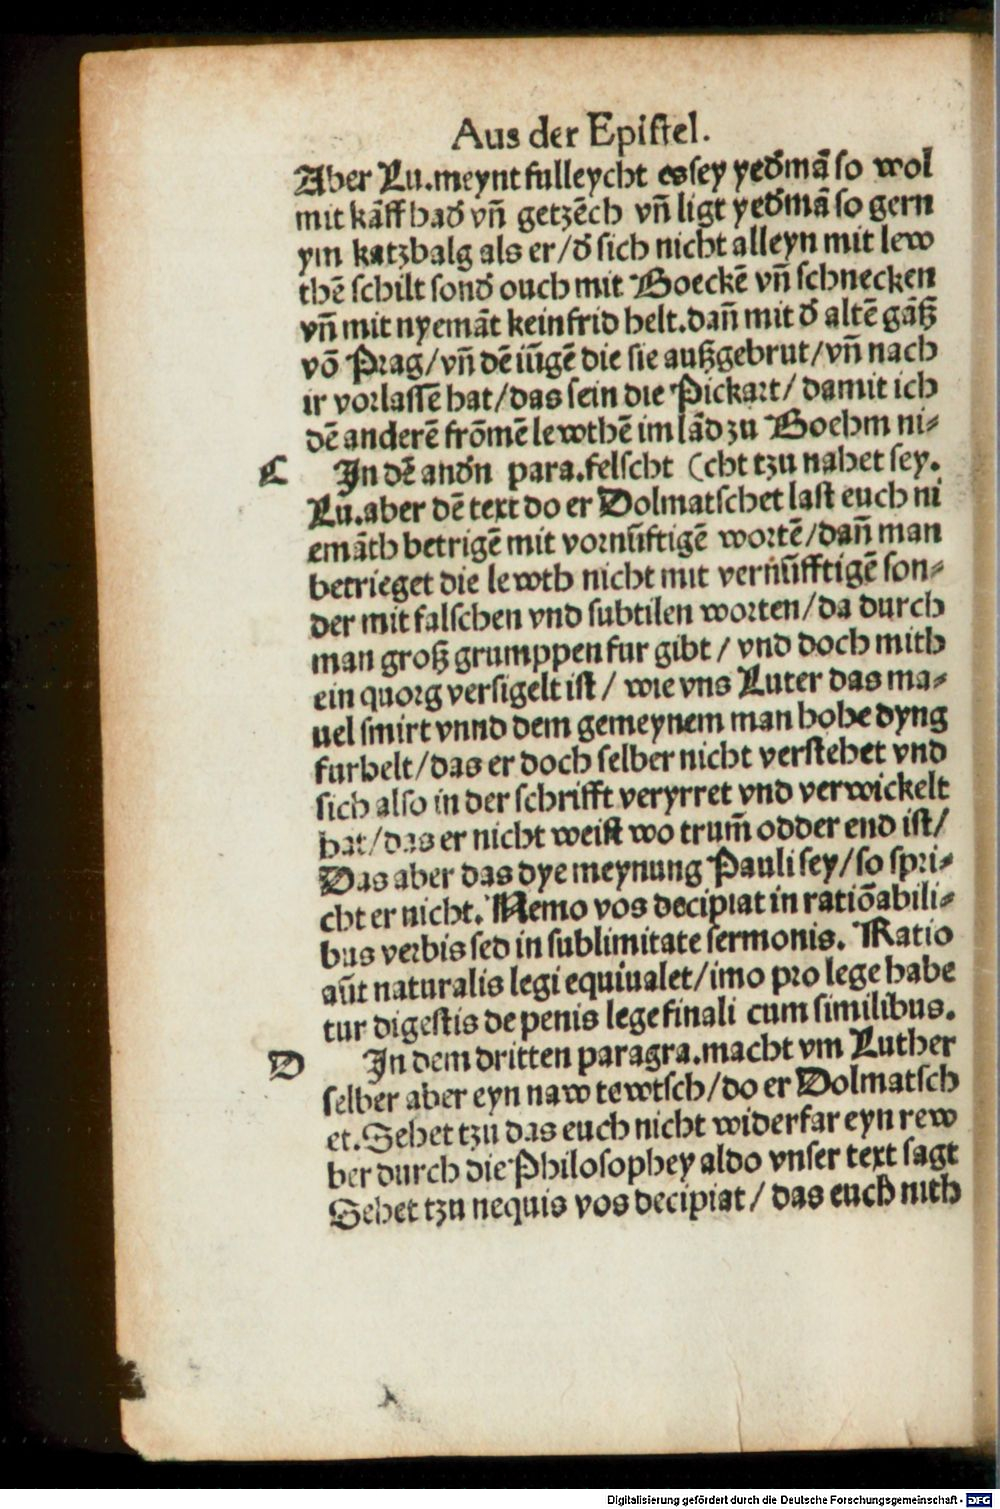 Aus der Epistel.
Aber Lu. meynt fulleycht es sey yed̄mā so wol
mit kāff had̄ vn̄ getzēch vn̄ ligt yed̄mā so gern
ym katzbalg als er/d̄ sich nicht alleyn mit lew
thē schilt sond̄ ouch mit Boeckē vn̄ schnecken
vn̄ mit nyemāt kein frid helt. dan̄ mit d̄ altē gātz
vō Prag/vn̄ dē iūgē die sie auszgebrut/vn̄ nach
ir vorlassē hat/das sein die Pickart/damit ich
dē anderē frōmē lewthē im lād zu Boehm ni-
C In dē and̄n para. felscht (cht tzu nahet sey.
Lu. aber dē text do er Dolmatschet last euch ni
emāth betrigē mit vornūftigē wortē/dan̄ man
betrieget die lewth nicht mit vernūfftigē son-
der mit falschen vnd subtilen worten/da durch
man grosz grumppen fur gibt/vnd doch mith
ein quorg versigelt ist/wie vns Luter das ma-
uel smirt vnnd dem gemeynem man hohe dyng
furhelt/das er doch selber nicht verstehet vnd
sich also in der schrifft veryrret vnd verwickelt
hat/das er nicht weist wo trum̄ odder end ist/
Das aber das dye meynung Pauli sey/so spri-
cht er nicht. Nemo vos decipiat in ratiōabili-
bus verbis sed in sublimitate sermonis. Ratio
aūt naturalis legi equiualet/imo pro lege habe
tur digestis de penis lege finali cum similibus.
D In dem dritten paragra. macht vm Luther
selber aber eyn naw tewtsch/do er Dolmatsch
et. Sehet tzu das euch nicht widerfar eyn rew
ber durch die Philosophey aldo vnser text sagt
Sehet tzu nequis vos decipiat/das euch nith
Digitalisierung gefördert durch die Deutsche Forschungsgemeinschaft - DFG